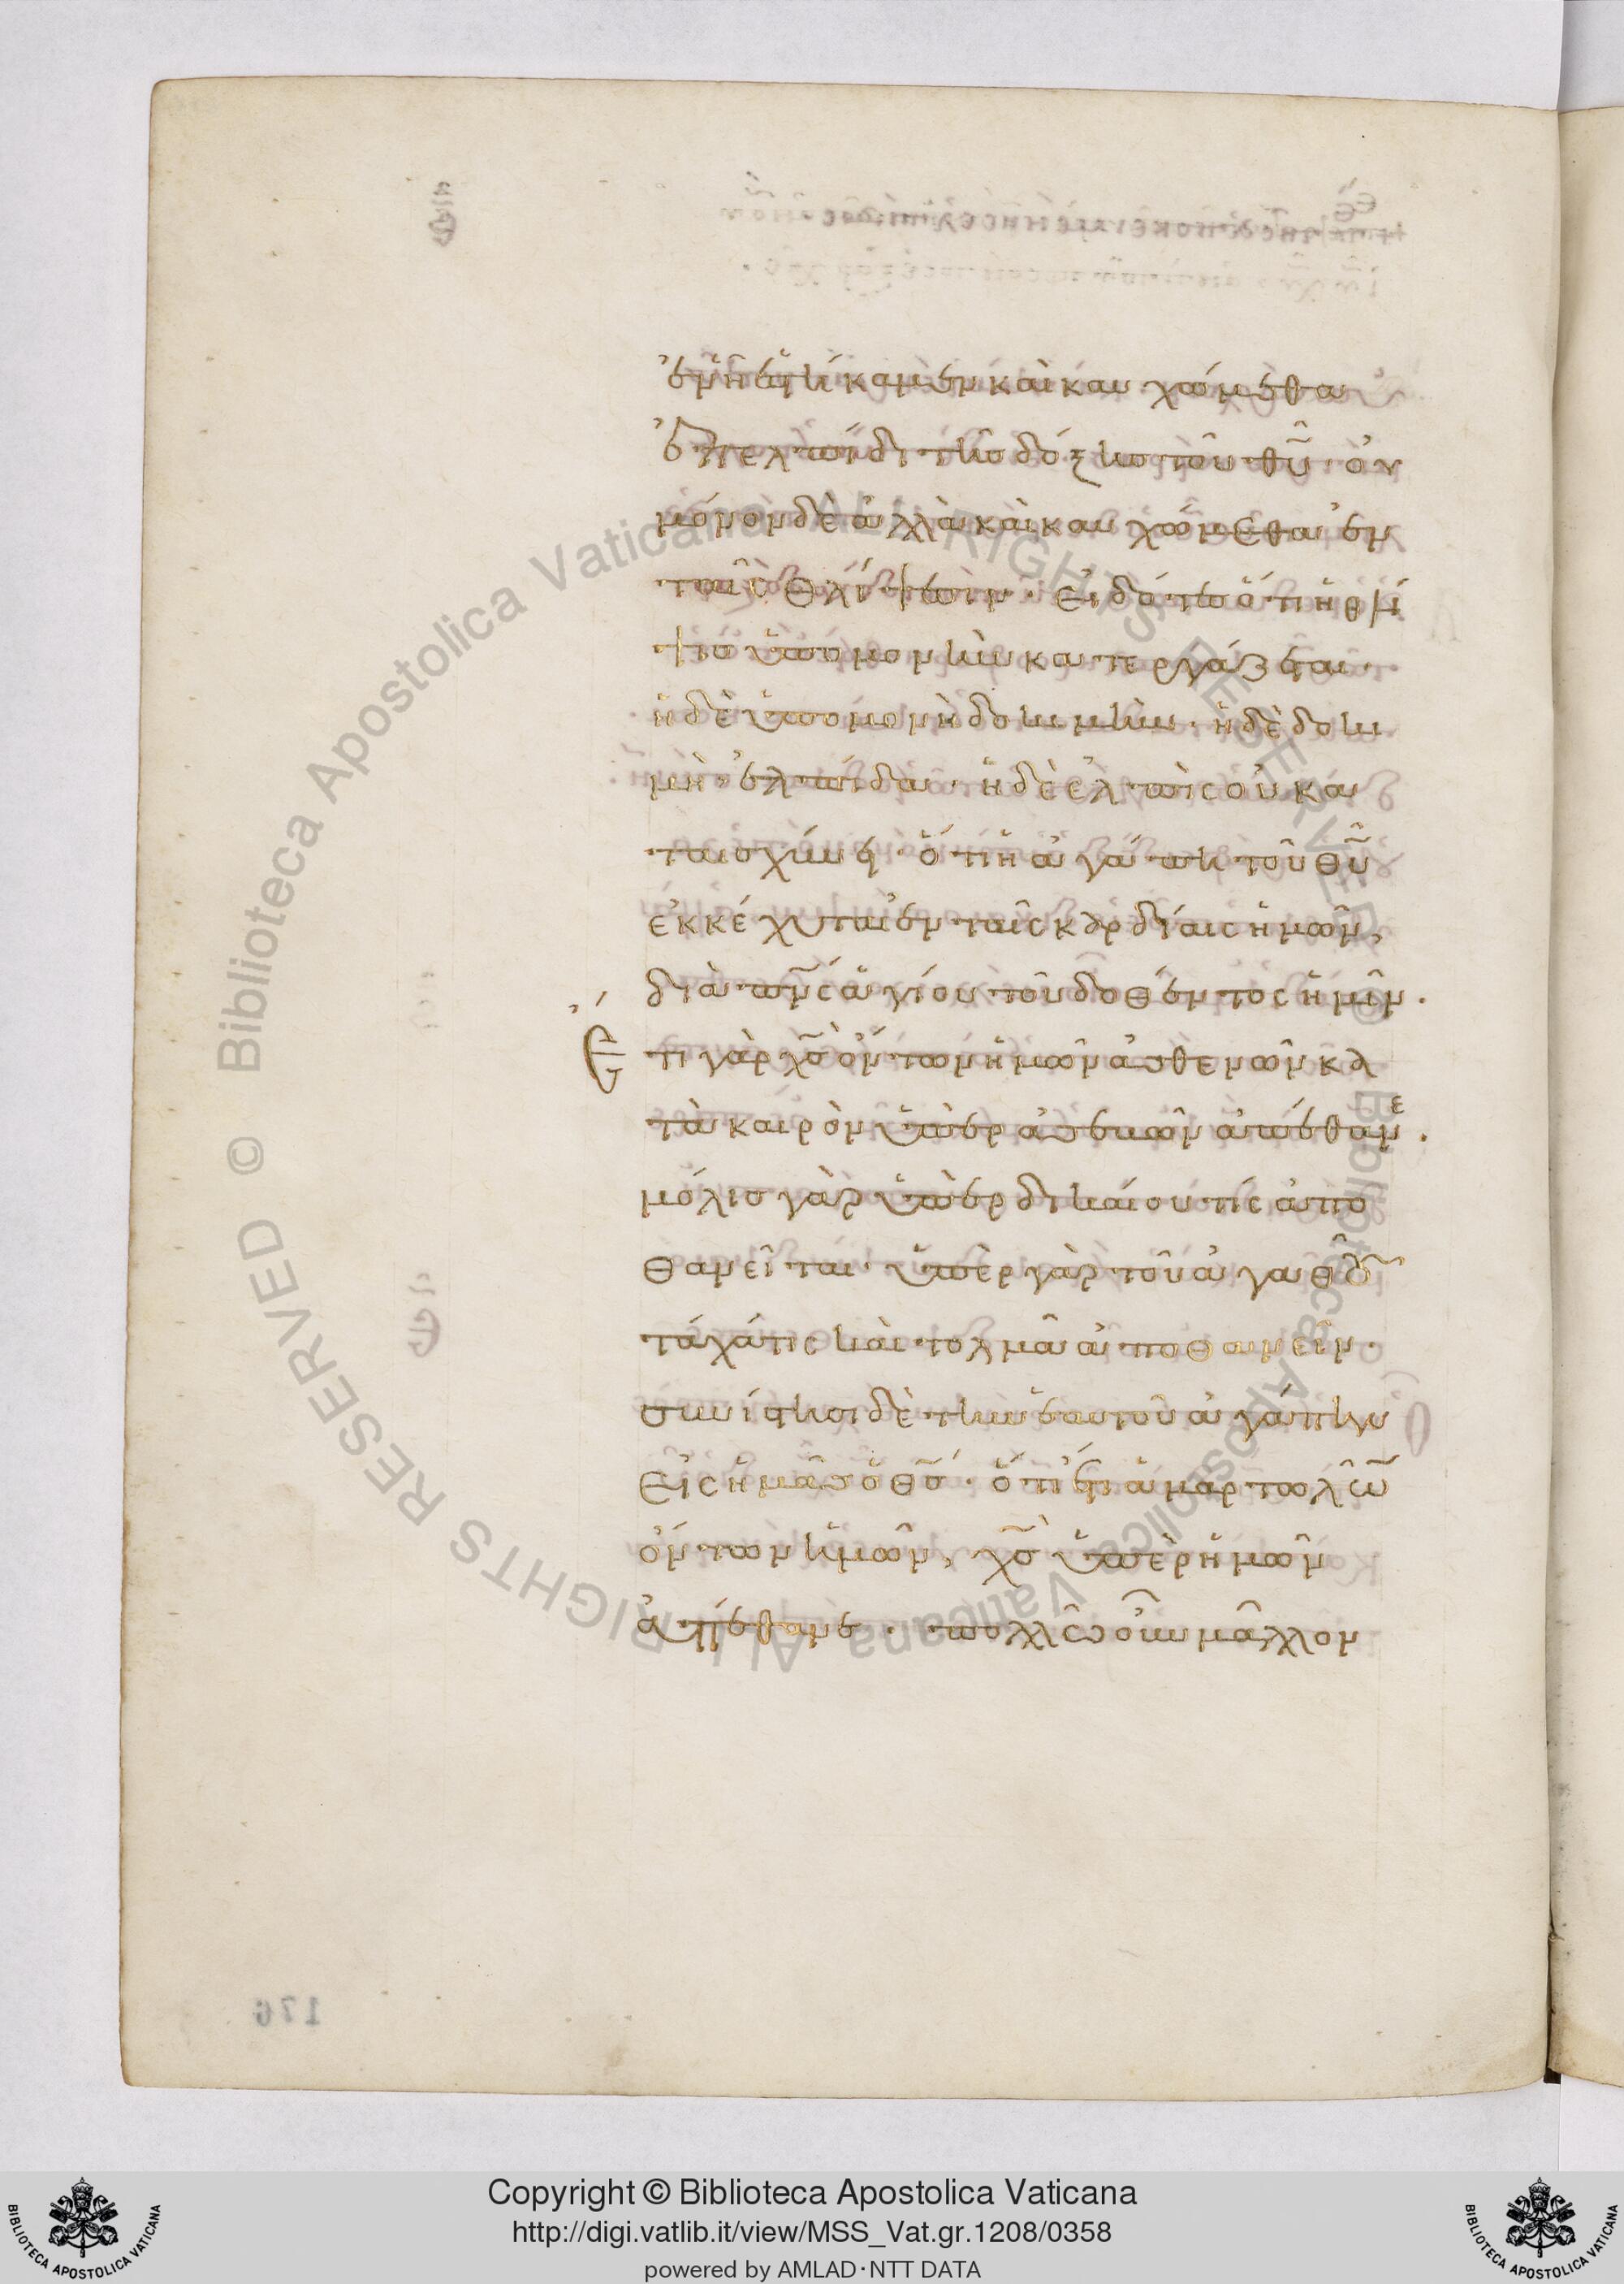 ἐν ᾗ ἑστήκαμεν καὶ καυχώμεθα
ἐπ ελπίδι τῆς δόξης τοῦ θυ̅· οὐ
μόνον δὲ ἀλλὰ καὶ καυχώμεθα ἐν
ταῖς θλίψεσιν· εἰδότες ὅτι ἡ θλί
ψις ὑπομονὴν κατεργάζεται·
ἡ δὲ ὑπομονὴ δοκιμὴν· ἡ δὲ δοκι
μὴ ἐλπίδα· ἡ δὲ ἐλπὶς οὐ κα
ταισχύνει· ὅτι ἡ ἀγάπη τοῦ θυ̅
ἐκκέχυται ἐν ταῖς καρδίαις ἡμῶν,
διὰ πν̅ς ἁγίου τοῦ δοθέντος ἡμῖν.
Ἔτι γὰρ χς̅ ὄντων ἡμῶν ἀσθενῶν κα
τὰ καιρὸν ὑπὲρ ἀσεβῶν ἀπέθανε.
μόλις γὰρ ὑπὲρ δικαίου τίς ἀπο
θανεῖται· ὑπὲρ γὰρ τοῦ ἀγαθοῦ
τάχά τις καὶ τολμᾶ ἀποθανεῖν.
συνίστησι δὲ τὴν ἑαυτοῦ ἀγάπην
εἰς ἡμᾶς ὁ θς̅· ὅτι ἔτι ἁμαρτωλῶν
ὄντων ἡμῶν, χς̅ ὑπὲρ ἡμῶν
ἀπέθανε. πολλῶ οὖν μᾶλλον
Copyright © Biblioteca Apostolica Vaticana
http://digi.vatlib.it/view/MSS_Vat.gr.1208/0358
powered by AMLAD·NTT DATA
Biblioteca Apostolica Vaticana ALL RIGHTS RESERVED ©
Biblioteca Apostolica Vaticana ALL RIGHTS RESERVED ©
BIBLIOTECA APOSTOLICA VATICANA
BIBLIOTECA APOSTOLICA VATICANA